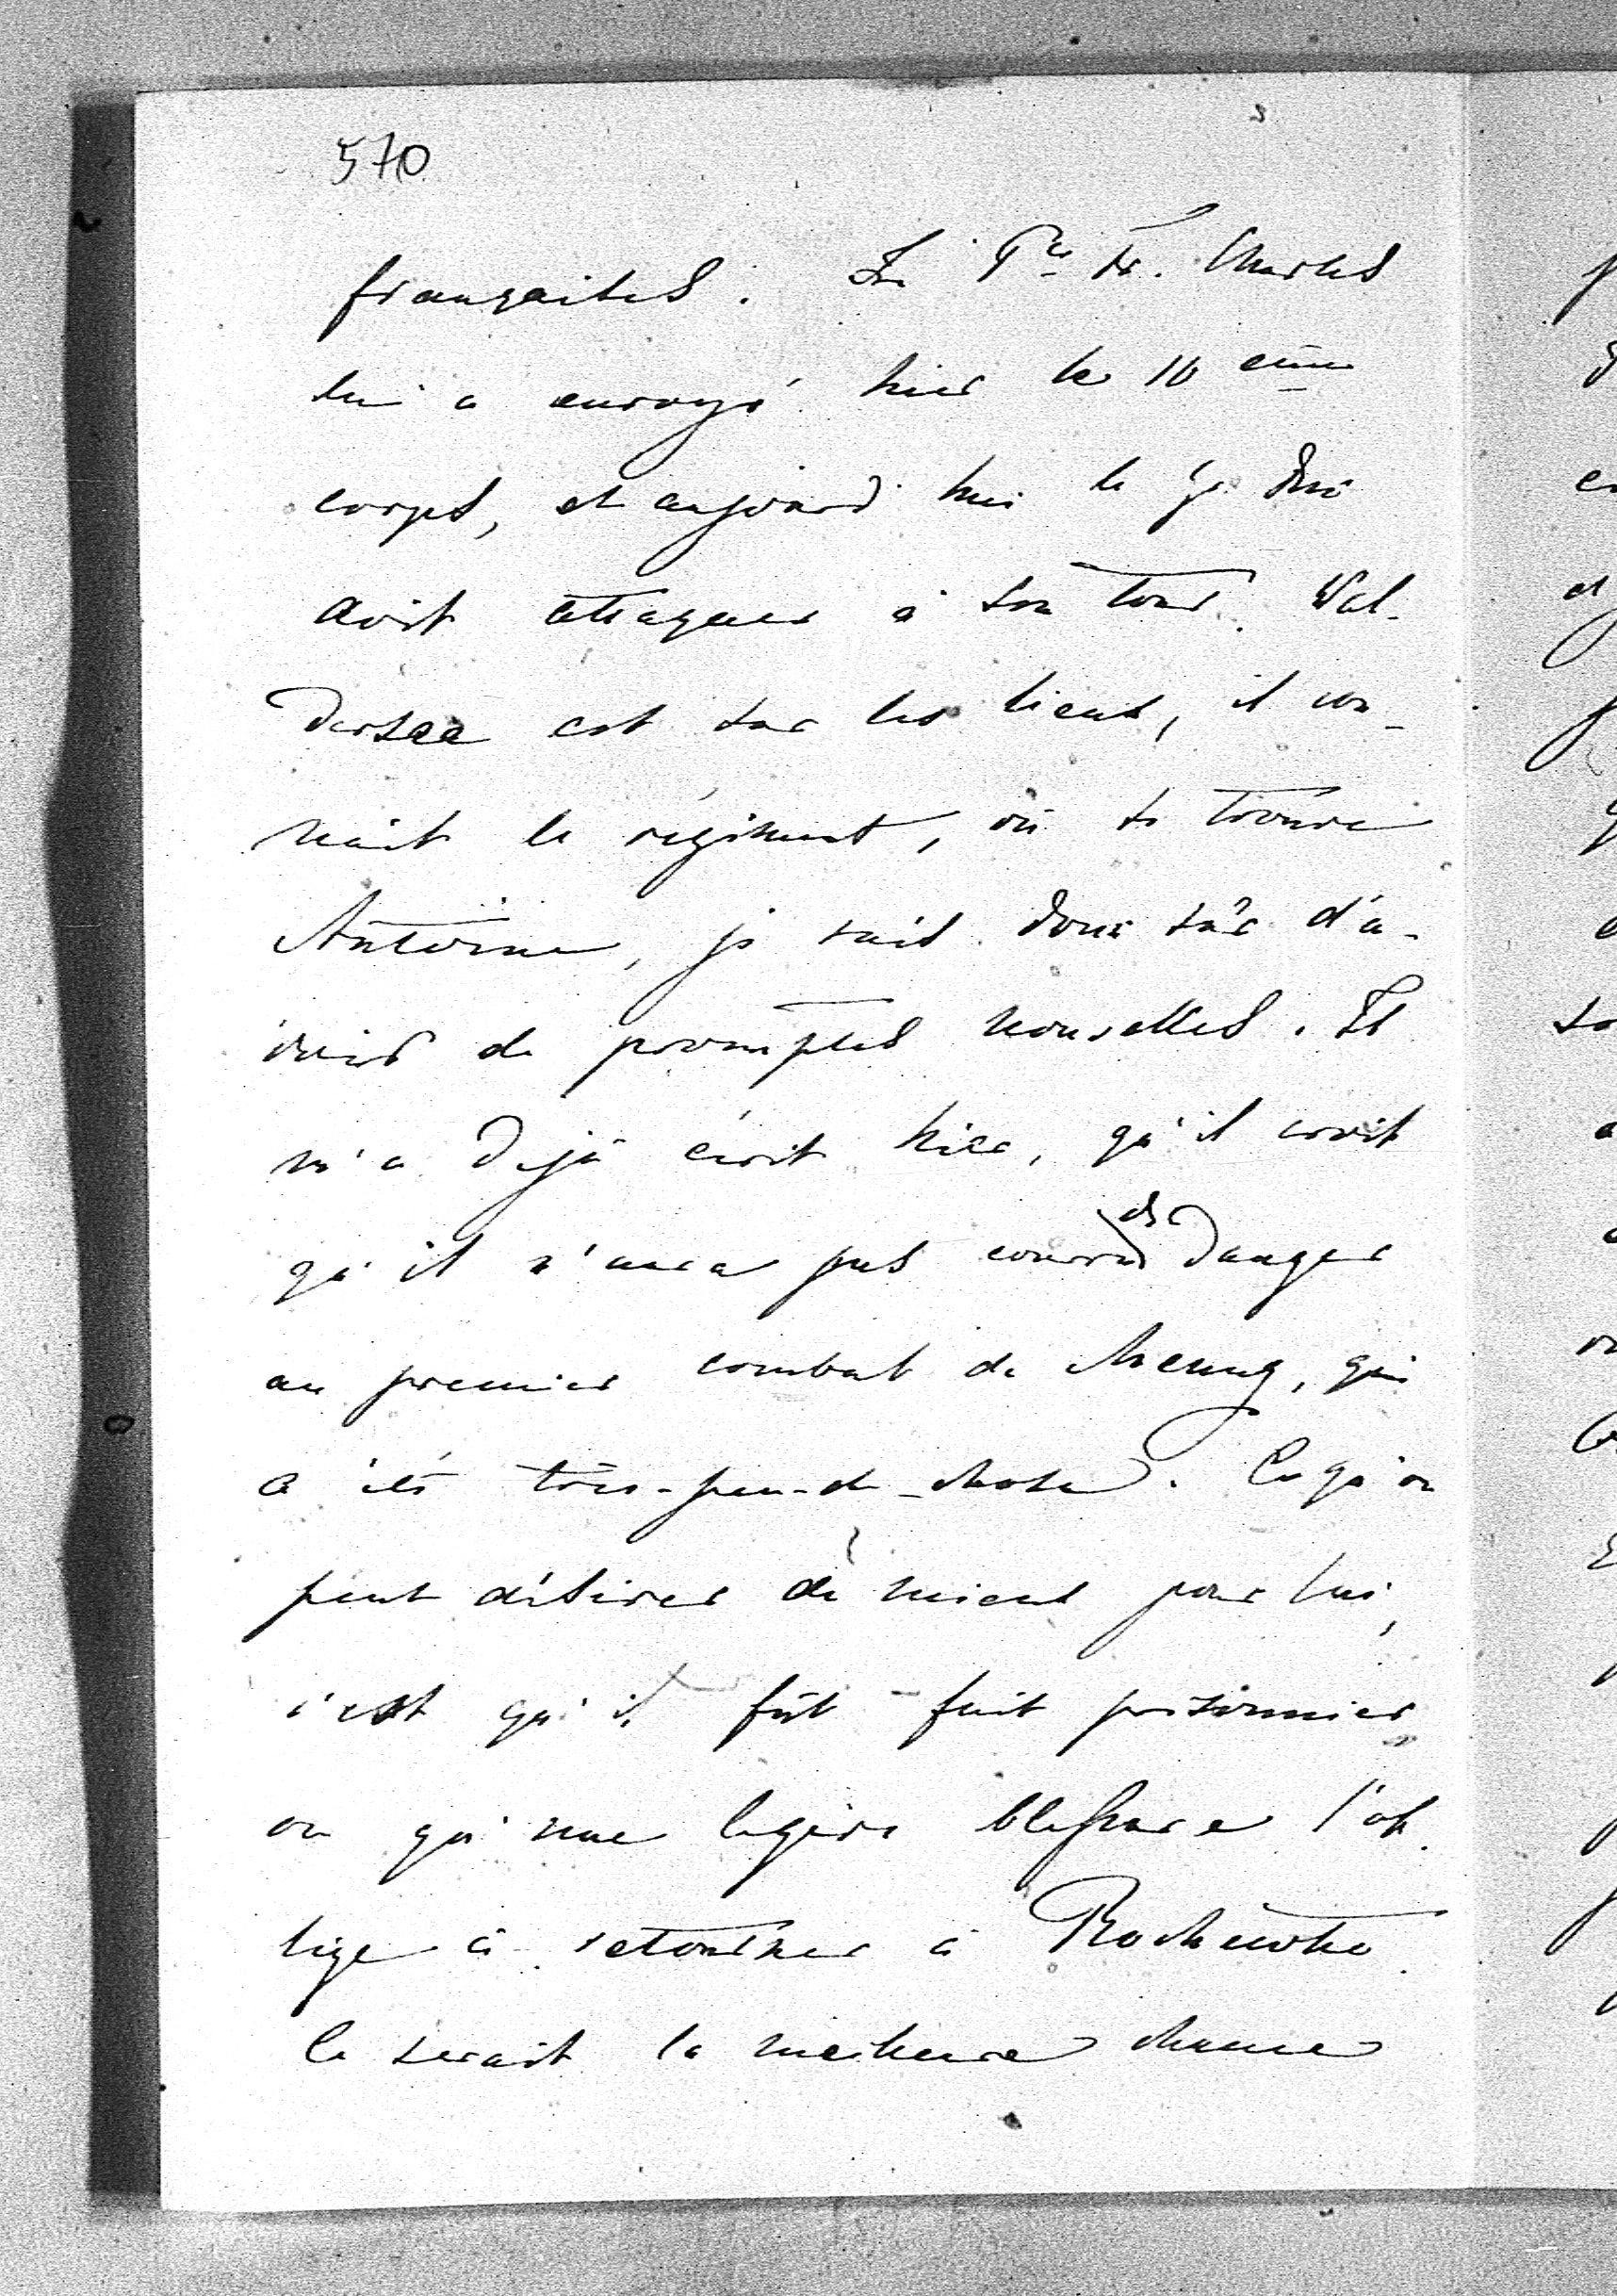 570
françaises. Le Pce Fr. Charles
lui a envoyé hier le 10 ème
corps, et aujourd'hui le gr Duc
doit attaquer à son tour. Wal-
dersee est sur les lieux, il con-
nait le régiment, où se trouve
Antoine, je suis donc sûr d'a-
voir de promptes nouvelles. Il
m'a déjà écrit hier, qu'il croit
qu'il n'aura pas couru de danger
au premier combat de Meung, qui
a été très-peu-de-chose. Ce qu'on
peut désirer de mieux pour lui,
c'est qu'il fût fait prisonnier
ou qu'une legère blessure l'ob-
lige à retourner à Rochecotte.
Ce serait la meilleure chance